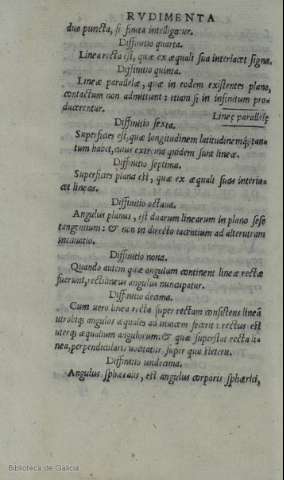 RVDIMENTA
duo puncta, si finita intelligatur.
Diffinitio quarta.
Linea recta est, quæ ex æquali sua interiacet signa.
Diffinitio quinta.
Lineæ parallelæ, quæ in eodem existentes plano,
contactum non admittunt: etiam si in infinitum pro
ducerentur.
Lineę parallelę
Diffinitio sexta.
Superficies est, quæ longitudinem latitudinemq; tan
tum habet, cuius extrema quidem sunt lineæ.
Diffinitio septima.
Superficies plana est, quæ ex æquali suas interia-
cet lineas.
Diffinitio octaua.
Angulus planus, est duarum linearum in plano sese
tangentium: & non in directo iacentium ad alterutram
inclinatio.
Diffinitio nona.
Quando autem quæ angulum continent lineæ rectæ
fuerint, rectilineus angulus nuncupatur.
Diffinitio decima.
Cum uero linea recta super rectam consistens lineã
utrobiq; angulos æquales ad inuicem fecerit: rectus est
uterq; æqualium angulorum: & quæ superstat recta li
nea, perpendicularis uocitatur super quã steterit.
Diffinitio undecima.
Angulus sphæralis, est angulus corporis sphærici,
Biblioteca de Galicia